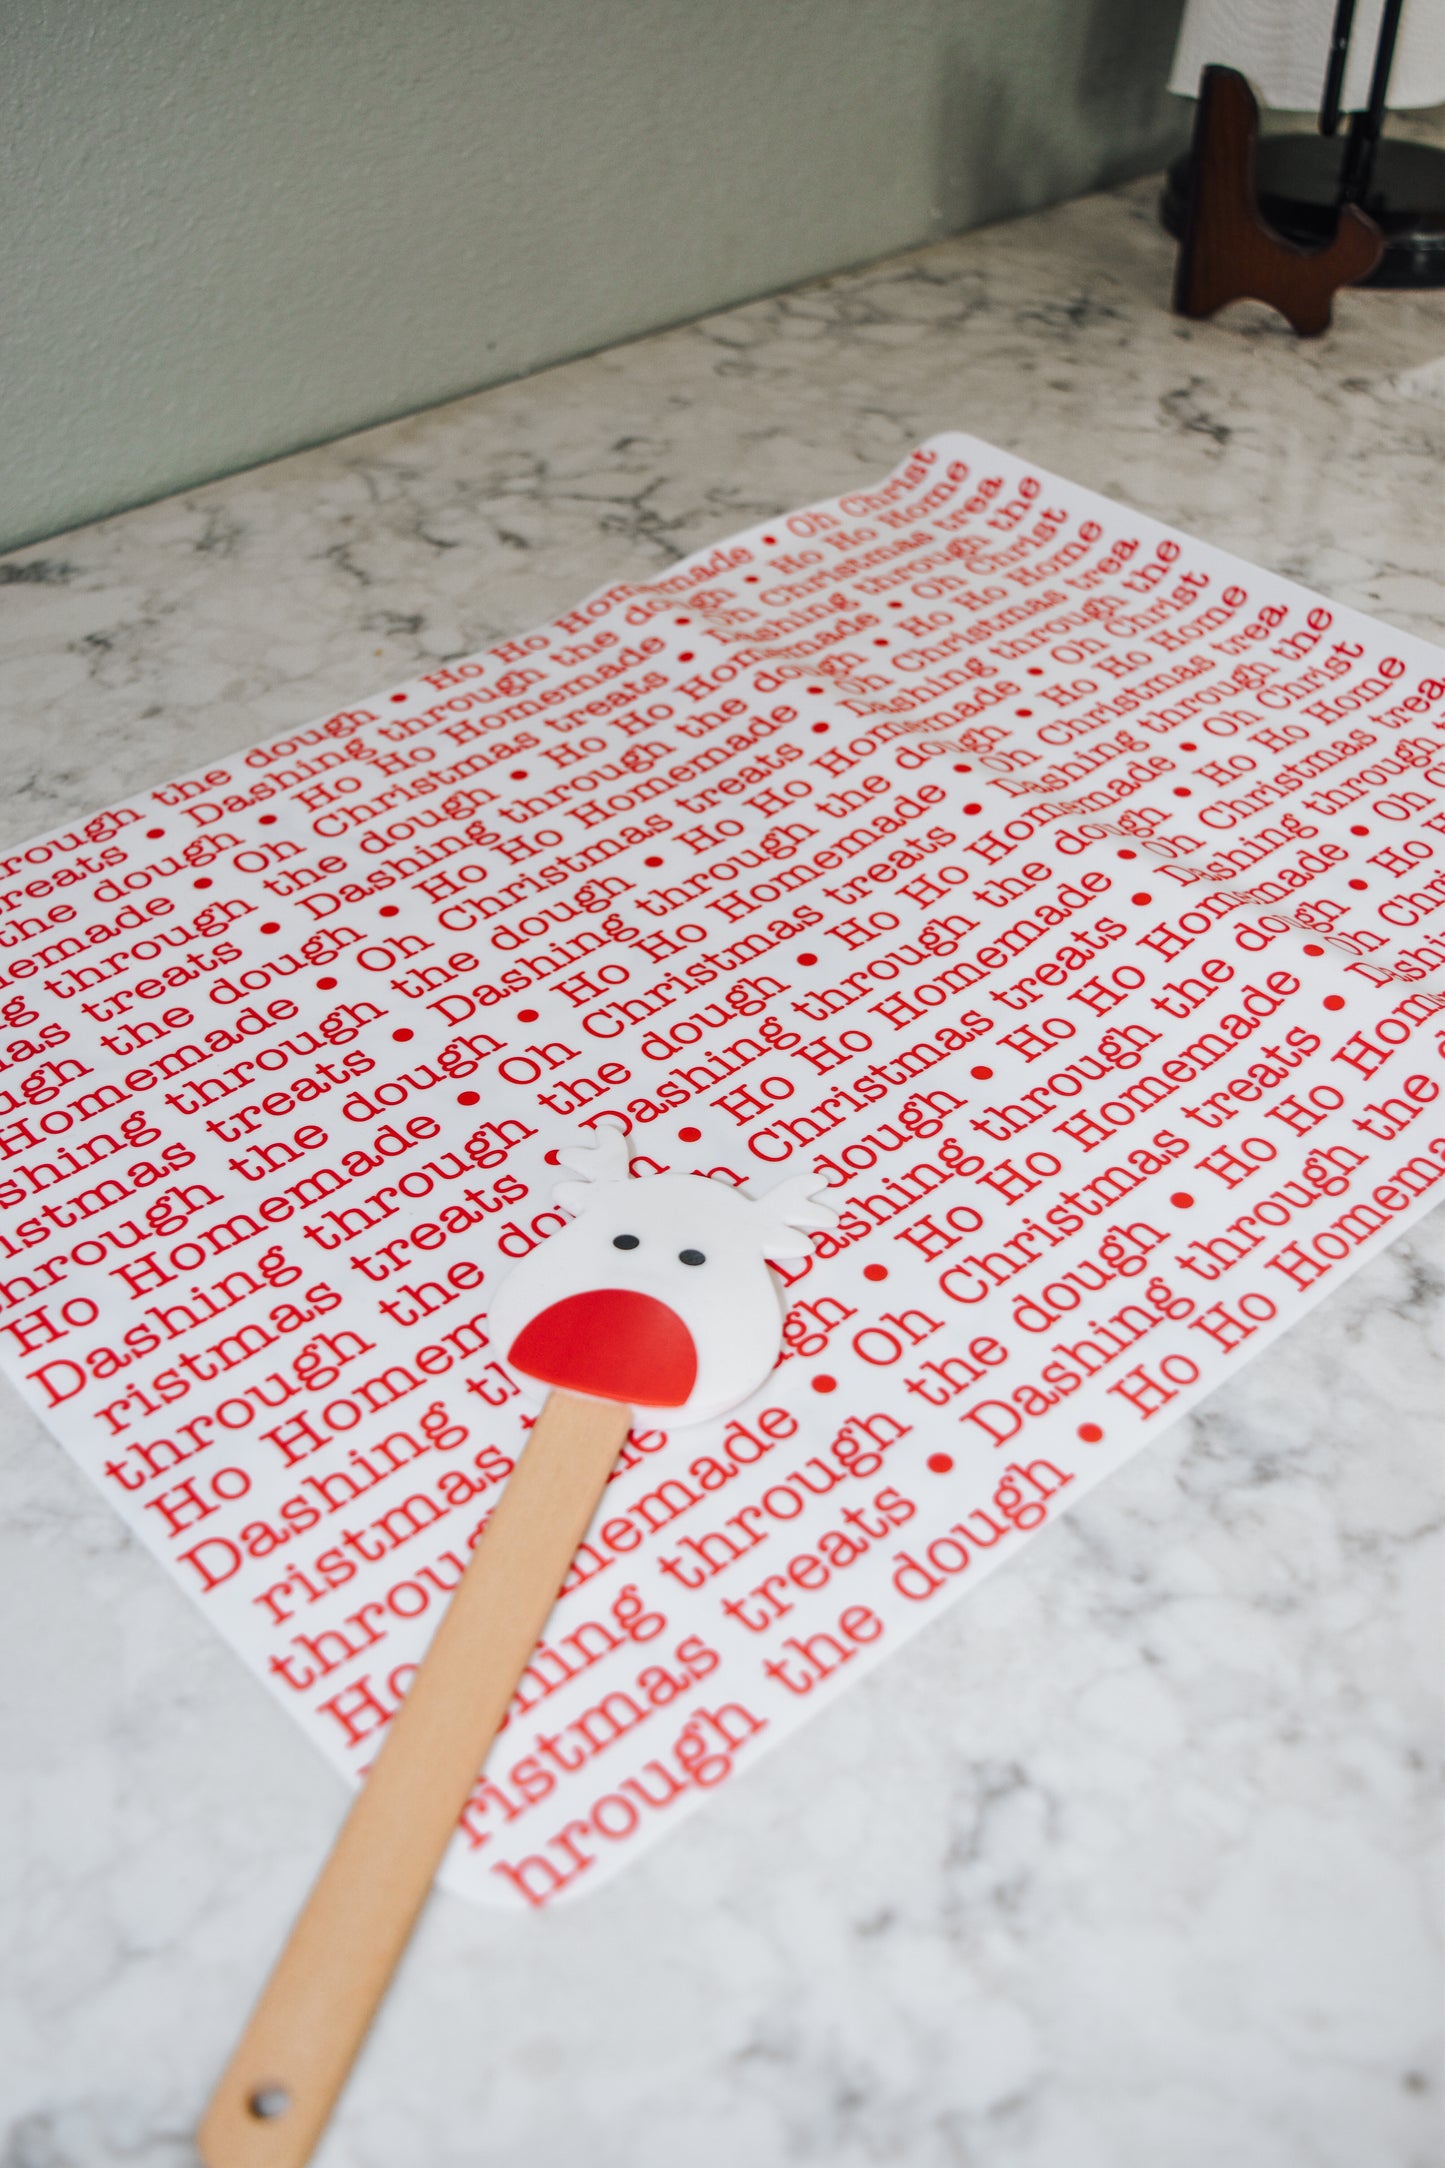 rough the dough • Ho Ho Homemade • Oh Christ
reats • Dashing through the dough • Ho Ho Home
the dough • Ho Ho Homemade • Oh Christmas trea
emade • Oh Christmas treats • Dashing through the
g through the dough • Ho Ho Homemade • Oh Christ
as treats • Dashing through the dough • Ho Ho Home
ugh the dough • Ho Ho Homemade • Oh Christmas trea
Homemade • Oh Christmas treats • Dashing through the
shing through the dough • Ho Ho Homemade • Oh Christ
istmas treats • Dashing through the dough • Ho Ho Home
hrough the dough • Ho Ho Homemade • Oh Christmas trea
Ho Homemade • Oh Christmas treats • Dashing through the
Dashing through the dough • Ho Ho Homemade • Oh Christ
ristmas treats • Dashing through the dough • Ho Ho Home
through the do • Ho Ho Homemade • Oh Christmas trea
Ho Homem h Christmas treats • Dashing through t
Dashing th dough • Ho Ho Homemade • Oh C
ristmas t Dashing through the dough • Ho H
throug he ugh • Ho Ho Homemade • Oh Chri
Ho memade • Oh Christmas treats • Dashin
hing through the dough • Ho Ho Hom
ristmas treats • Dashing through the d
hrough the dough • Ho Ho Homema